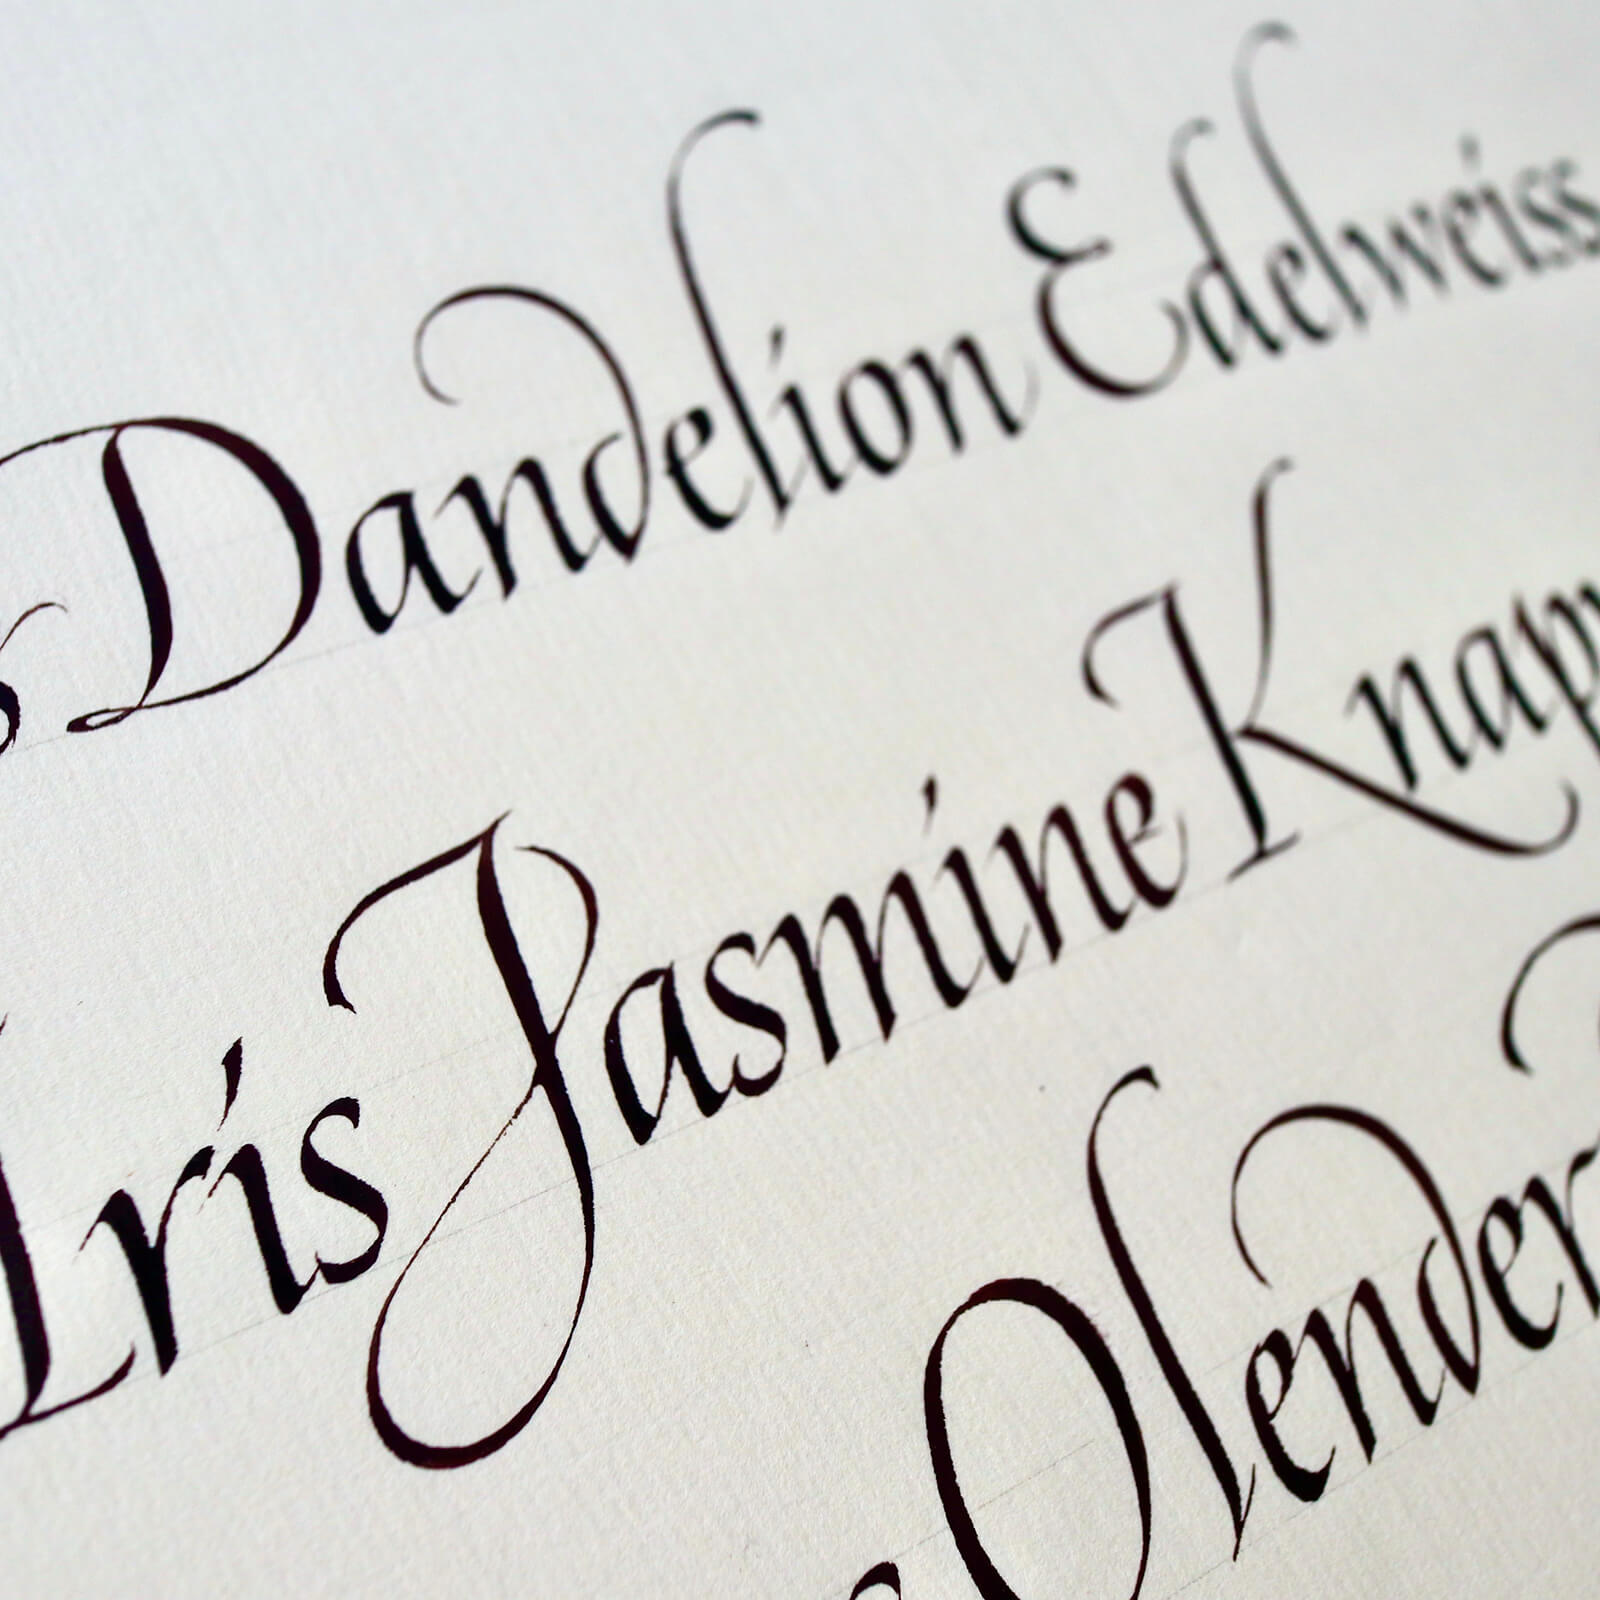 s Dandelion Edelweiss
Iris Jasmine Knap
s Olender